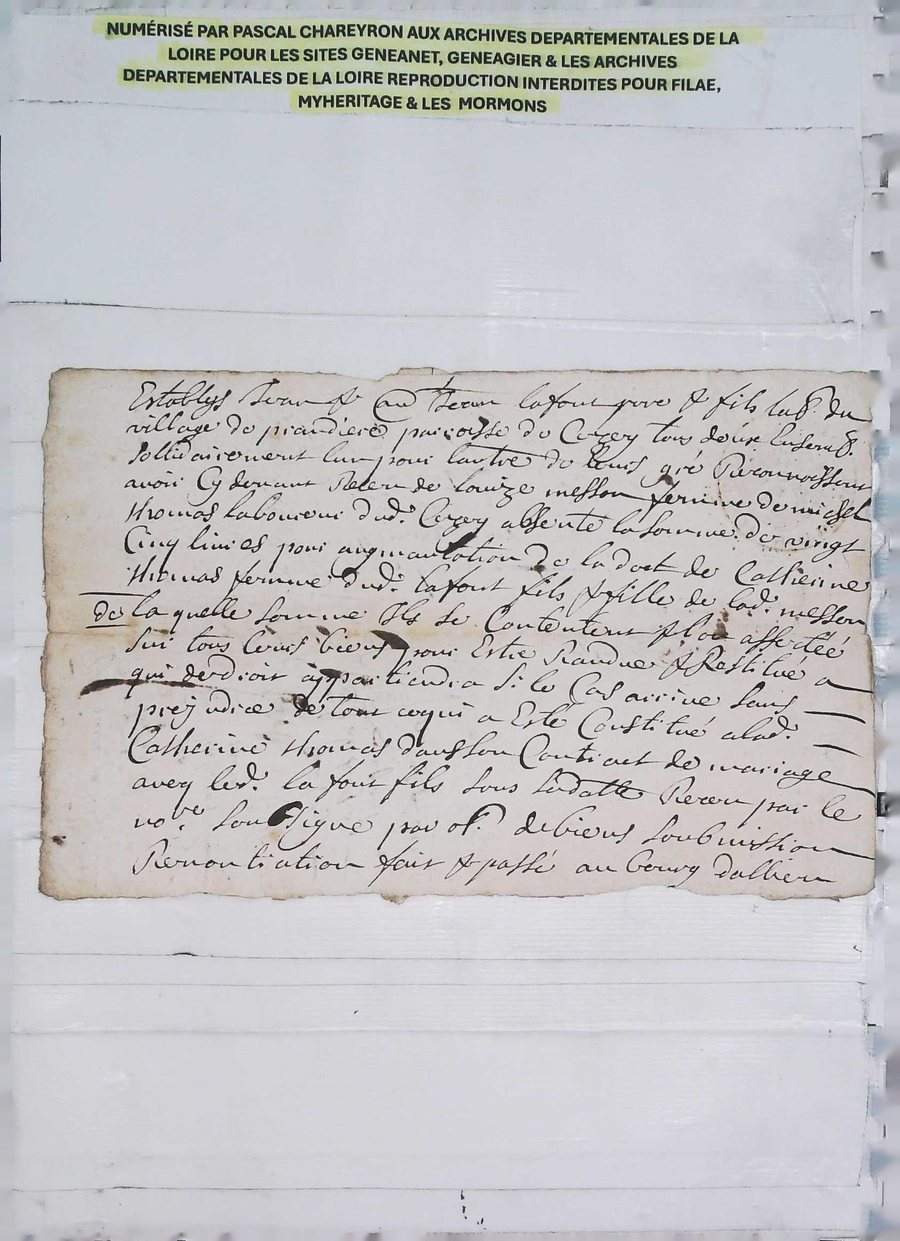 NUMÉRISÉ PAR PASCAL CHAREYRON AUX ARCHIVES DEPARTEMENTALES DE LA
LOIRE POUR LES SITES GENEANET, GENEAGIER & LES ARCHIVES
DEPARTEMENTALES DE LA LOIRE REPRODUCTION INTERDITES POUR FILAE,
MYHERITAGE & LES MORMONS
Establys Jean & Jean lafont pere & fils lab. du
village de prandiere parroisse de Cezey tous deux
sollidairement lun pour lautre de leurs gré Reconnoissent
avoir Cy devant Receu de Louize messon femme de michel
thomas laboureur dud. Cezey absente la somme de vingt
Cinq livres pour augmantation de la dost de Catherine
thomas femme dud. lafont fils & fille de lad. messon
de la quelle somme Ils se Contentent & lont affectée
sur tous leurs biens pour Estre Randue & Restitué a
qui de droit appartiendra si le Cas arrive sans
prejudice de tout cequi a Esté Constitué alad.
Catherine thomas dans son Contract de mariage
aveq led. lafont fils sous sadatte Receu par le
no.re soubsigné par ob. de biens soubmission
Renontiation fait & passé au bourg dallieu